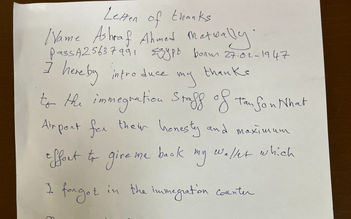 Letter of thanks
Name Ashraf Ahmed Metwally
Pass A25637991 Egypt born 27-02-1947
I hereby introduce my thanks
to the immegration Staff of TanSonNhat
Airport for their honesty and maximum
effort to give me back my wallet which
I forgot in the immegration counter